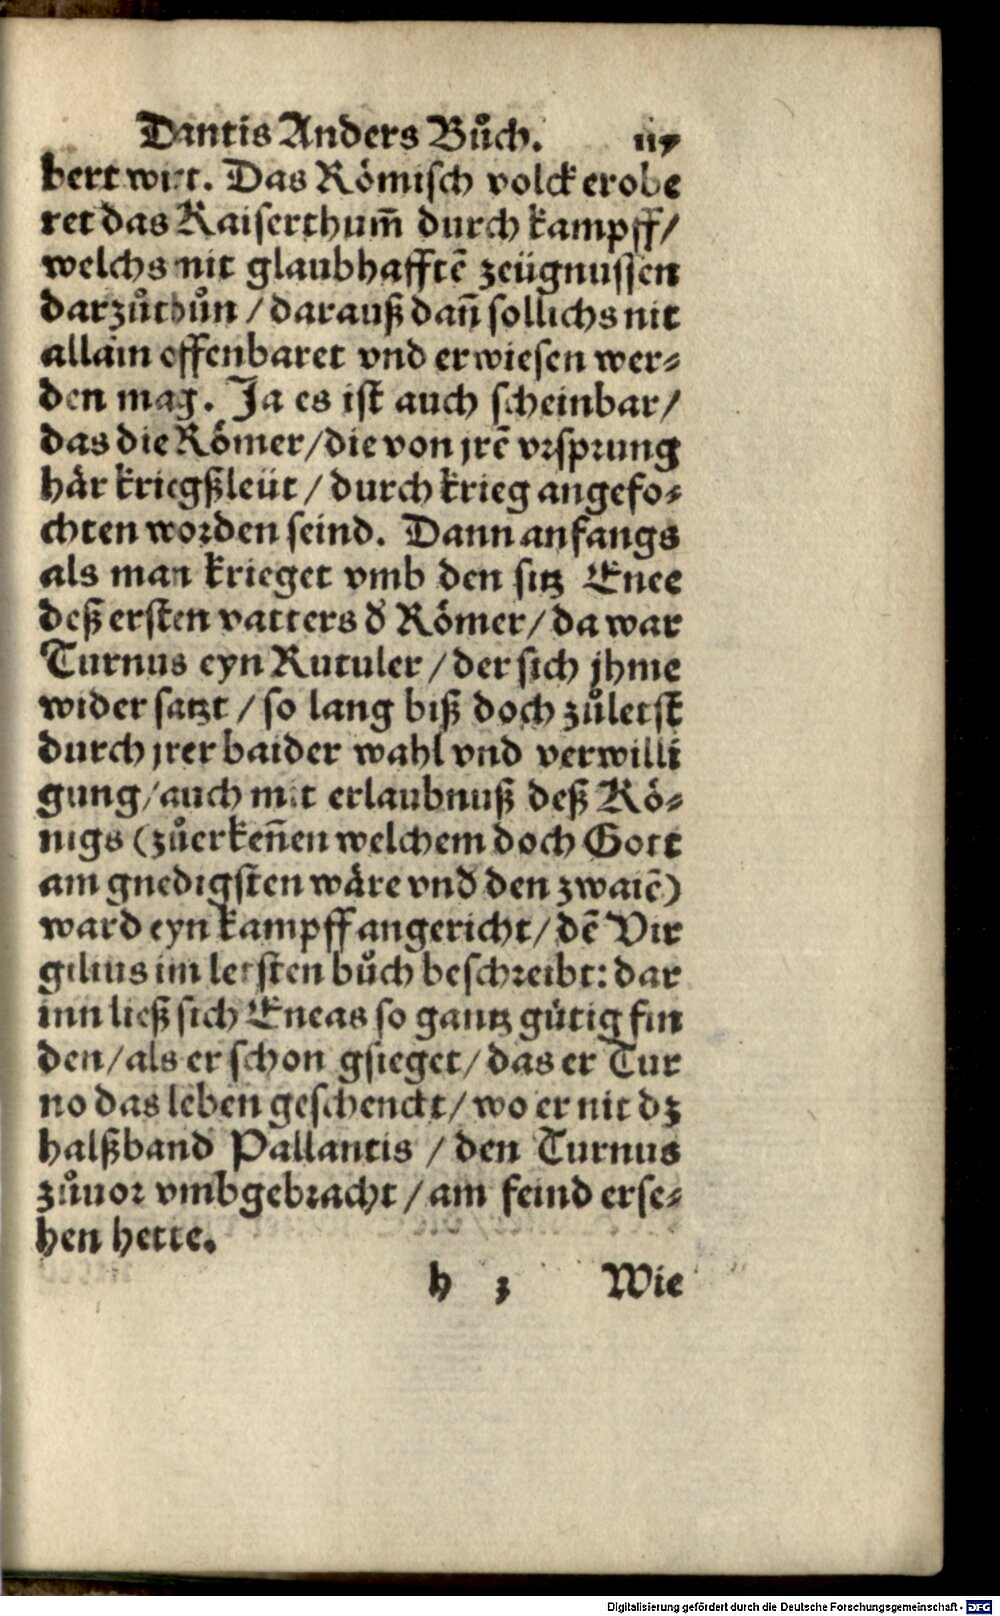 Dantis Anders Bůch. 117
bert wirt. Das Römisch volck erobe
ret das Kaiserthum̃ durch kampff/
welchs mit glaubhafftẽ zeügnussen
darzůthůn / darauß dañ sollichs nit
allain offenbaret vnd erwiesen wer⸗
den mag. Ja es ist auch scheinbar/
das die Römer/die von jrẽ vrsprung
här kriegßleüt / durch krieg angefo⸗
chten worden seind. Dann anfangs
als man krieget vmb den sitz Enee
deß ersten vatters d̕ Römer/ da war
Turnus eyn Rutuler / der sich jhme
wider satzt / so lang biß doch zůletst
durch jrer baider wahl vnd verwilli
gung/auch mit erlaubnuß deß Kö⸗
nigs (zůerkeñen welchem doch Gott
am gnedigsten wäre vnd den zwaiẽ)
ward eyn kampff angericht/ dẽ Vir
gilius im letsten bůch beschreibt: dar
inn ließ sich Eneas so gantz gütig fin
den/als er schon gsieget/ das er Tur
no das leben geschenckt/ wo er nit dz
halßband Pallantis / den Turnus
zůuor vmbgebracht / am feind erse⸗
hen hette.
h 3 Wie
Digitalisierung gefördert durch die Deutsche Forschungsgemeinschaft - DFG